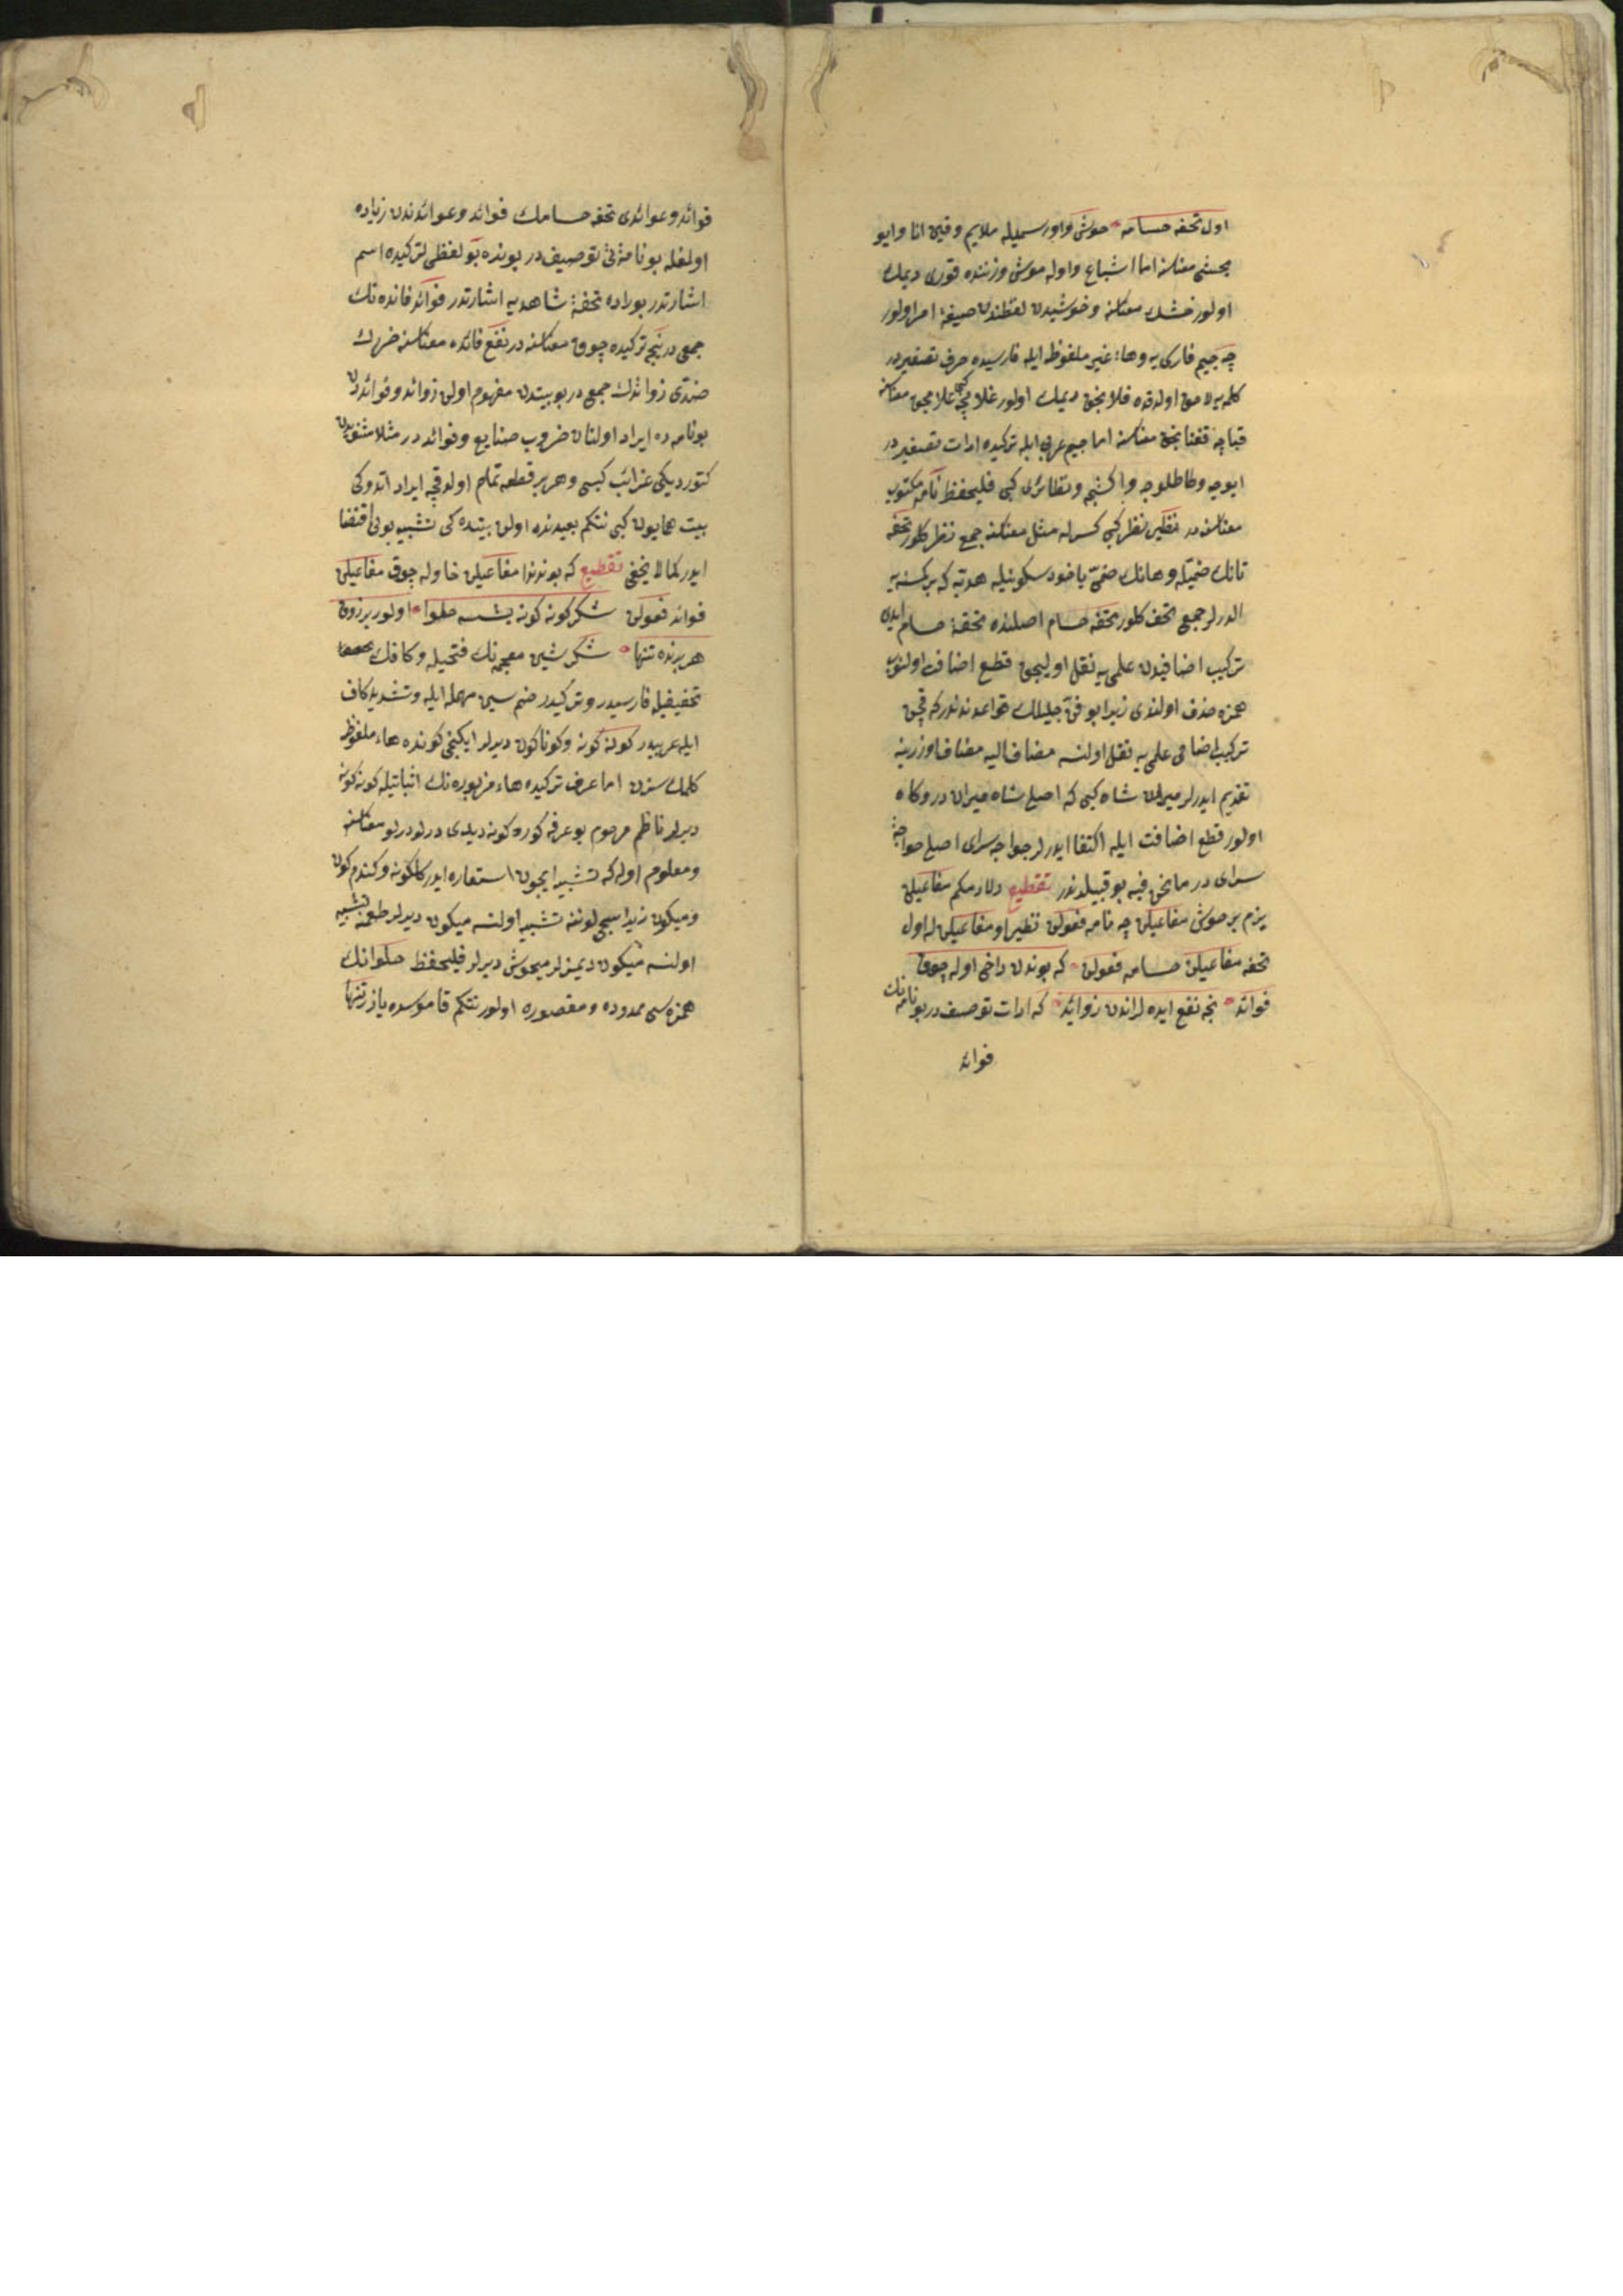 اول تحفه حسامه خوش واو رسمیله ملایم وقین انا وایو
یخشی معناسنه اما اشباع واوله موش وزننده قوری دیمك
اولور خشك معناسنه وخوشیدن لفظندن صیغهٔ امر اولور
چه جیم فارسی یه وهاء غیر ملفوظه ایله فارسیده حرف تصغیردر
كلمه یه لاحق اولدقده فلانجق دیمك اولور غلامچه كبی غلامجق معناسنه
قباچه قفتانجق معناسنه اما جیم عربی ایله تركیده ادات تصغیردر
ایوجه وطاطلوجه واكشیجه ونظائرلری كبی فلیحفظ نامه مكتوب
معناسنه در نظیر نظر كبی كسرله مثل معناسنه جمع نظر كلور تحفه
تانك ضمیله وهانك ضمی یاخود سكونیله هدیه كه بر كسنه یه
الدرلر جمع تحف كلور تحفه حسام اصلنده تحفهٔ حسام ایدی
تركیب اضافیدن علمی یه نقل اولیجق قطع اضافت اولنوب
همزه حذف اولندی زیرا بو فن جلیلك قواعدندندر كه قچن
تركیب اضافی علمی یه نقل اولنسه مضاف الیه مضاف اوزرینه
تقدیم ایدرلر میران شاه كبی كه اصلی شاه میران در وكاه
اولور قطع اضافت ایله اكتفا ایدرلر خواجه سرای اصلی خواجهٔ
سرای در مانحن فیه بو قبیلدندر تقطیع دلادمكم مفاعیلن
یزم بر خوش مفاعیلن چه نامه فعولن نظیراو مفاعیلن له اول
تحفه مفاعیلن حسامه فعولن كه بوندن داخی اوله چوق
فوائد نجه نفع ایده لر اندن زوائد كه ادات توصیف در بو نامه نك
فوائد
فوائد وعوائدی تحفه حسامك فوائد وعوائدندن زیاده
اولمغله بو نامه یی توصیف در بونده بو لفظی تركیده اسم
اشارتدر بوراده تحفهٔ شاهدیه اشارتدر فوائد فائده نك
جمعی در نجه تركیده چوق معناسنه در نفع فائده معناسنه ضررك
ضدی زوائدك جمعی در بو بیتدن مفهوم اولن زوائد وفوائددن
بو نامه ده ایراد اولنان ضروب صنایع وفوائد در مثلا مثنویدن
كتوردیكی غرائب كبی وهر بر قطعه تمام اولدقچه ایراد اتدوكی
بیت همایون كبی نتكم بعیدنده اولن بیتده كی تشبیه بونی اقتضا
ایدر كما لا یخفی تقطیع كه بوندندا مفاعیلن خا وله چوق مفاعیلن
فوائد فعولن شكر كونه كونه یشسه حلوا اولور بر ذوق
هر برنده تنها شكر شین معجمه نك فتحیله وكافك
تخفیفیله فارسیدر وتركیدر ضم سین مهمله ایله وتشدید كاف
ایله عربیدر كونه كونه وكوناكون دیرلر ایكنجی كونده هاء ملفوظ
كلمك سزن اما عرف تركیده هاء مزبوره نك اثباتیله كونه كونه
دیرلر ناظم مرحوم بو عرفه كوره كونه دیدی درلو درلو معناسنه
ومعلوم اوله كه تشبیه ایچون استعاره ایدر كلكونه وكندم كون
ومیكون زیرا سجی لوننه تشبیه اولنسه میكون دیرلر طعمنه تشبیه
اولنسه میكون دیمزلر میخوش دیرلر فلیحفظ حلوانك
همزه سی ممدوده ومقصوره اولور نتكم قاموسده یازر تنها